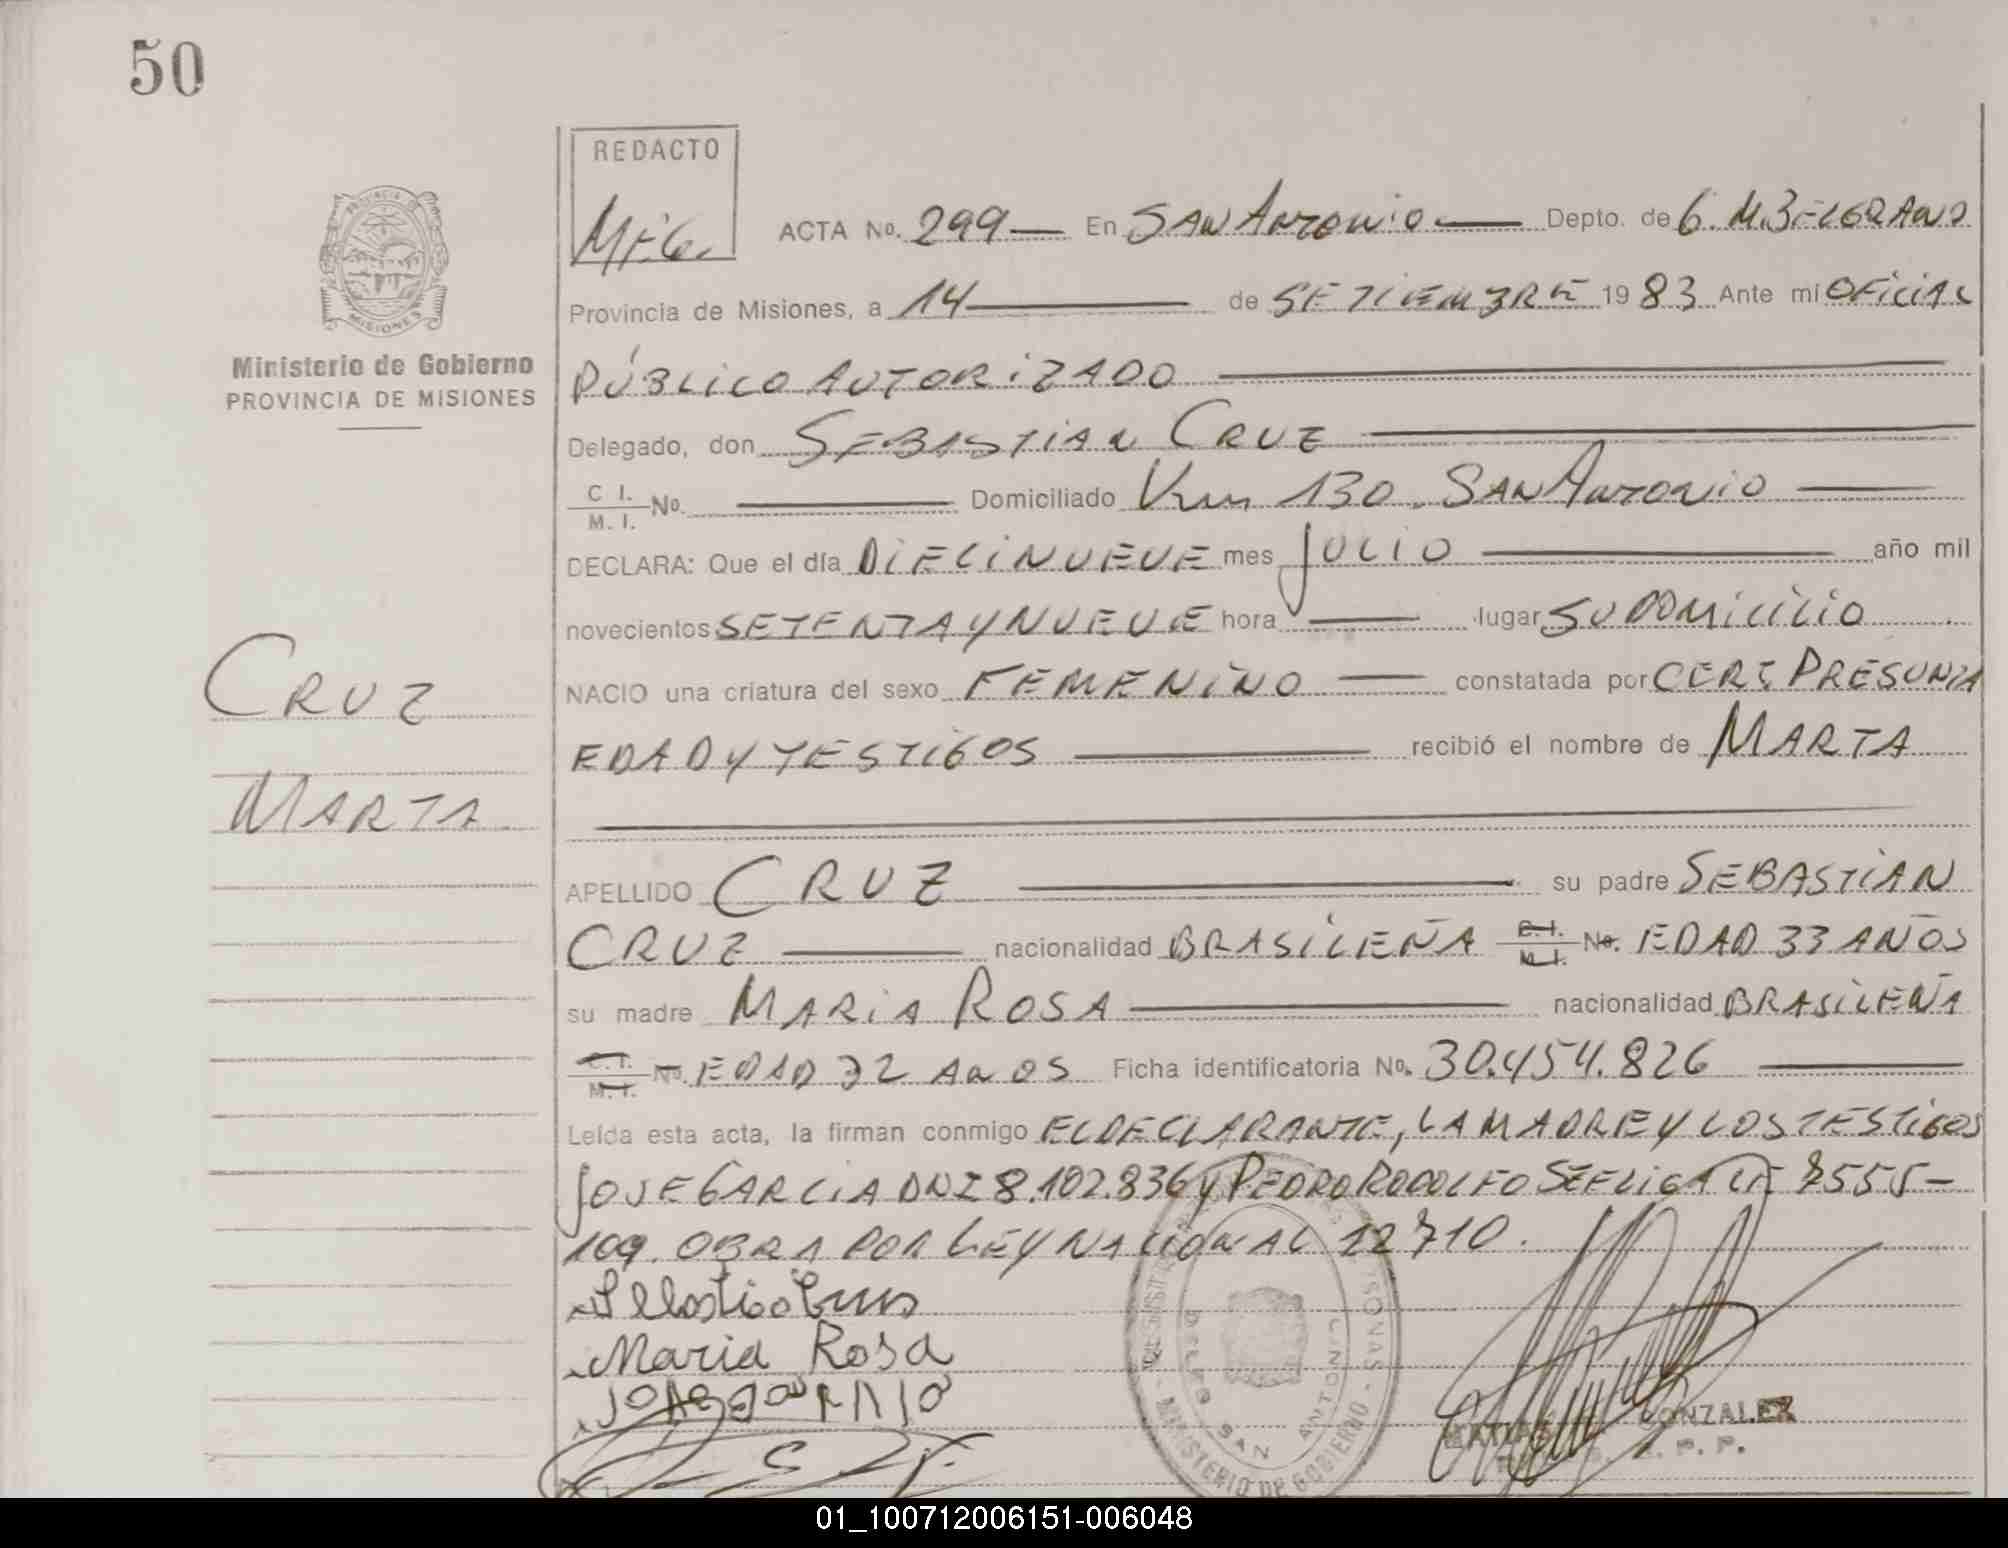 50
REDACTO
M.F.G.
PROVINCIA DE MISIONES
Ministerio de Gobierno
PROVINCIA DE MISIONES
ACTA No. 299 — En SAN ANTONIO — Depto. de G. M. BELGRANO
Provincia de Misiones, a 14 — de SETIEMBRE 1983 Ante mi OFICIAL
PÚBLICO AUTORIZADO —
Delegado, don SEBASTIAN CRUZ —
C. I. / M. I. No. — Domiciliado Km 130. SAN ANTONIO —
DECLARA: Que el día DIECINUEVE mes JULIO — año mil
novecientos SETENTA Y NUEVE hora — lugar SU DOMICILIO
NACIO una criatura del sexo FEMENINO — constatada por CERT. PRESUNTA
EDAD Y TESTIGOS — recibió el nombre de MARTA
CRUZ
MARTA
APELLIDO CRUZ — su padre SEBASTIAN
CRUZ — nacionalidad BRASILEÑA C. I. / M. I. No. EDAD 33 AÑOS
su madre MARIA ROSA — nacionalidad BRASILEÑA
C. I. / M. I. No. EDAD 32 AÑOS Ficha identificatoria No. 30.454.826 —
Leída esta acta, la firman conmigo EL DECLARANTE, LA MADRE Y LOS TESTIGOS
JOSE GARCIA DNI 8.102.836 y PEDRO RODOLFO SEFLIGA LE 7555-
109. OBRA POR LEY NACIONAL 12710.
Maria Rosa
SAN ANTONIO
MINISTERIO DE GOBIERNO
GONZALEZ
01_100712006151-006048